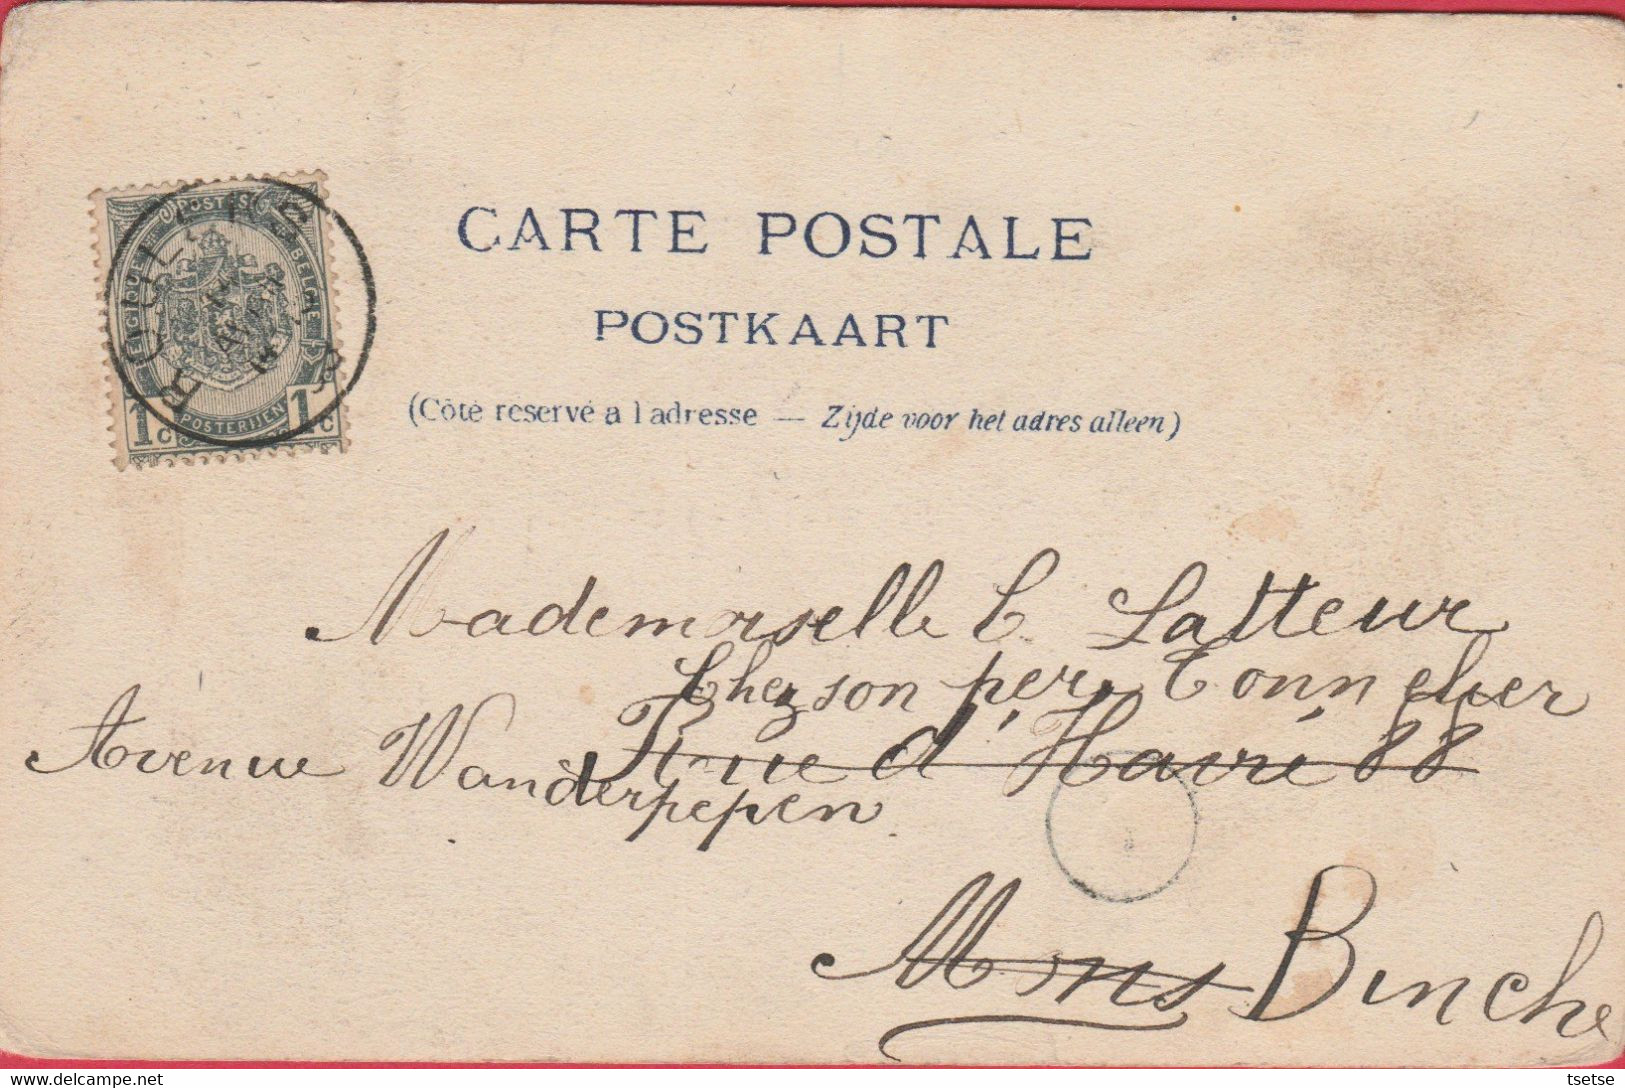 CARTE POSTALE
POSTKAART
(Côté réservé a l'adresse — Zijde voor het adres alleen)
POSTES
BELGIQUE BELGIE
1c POSTERIJEN 1c
Mademoiselle C. Latteur
Chez son per, Tonnelier
Rue d'Havré 88
Avenue Wanderpepen
Mons Binche
www.delcampe.net
tsetse